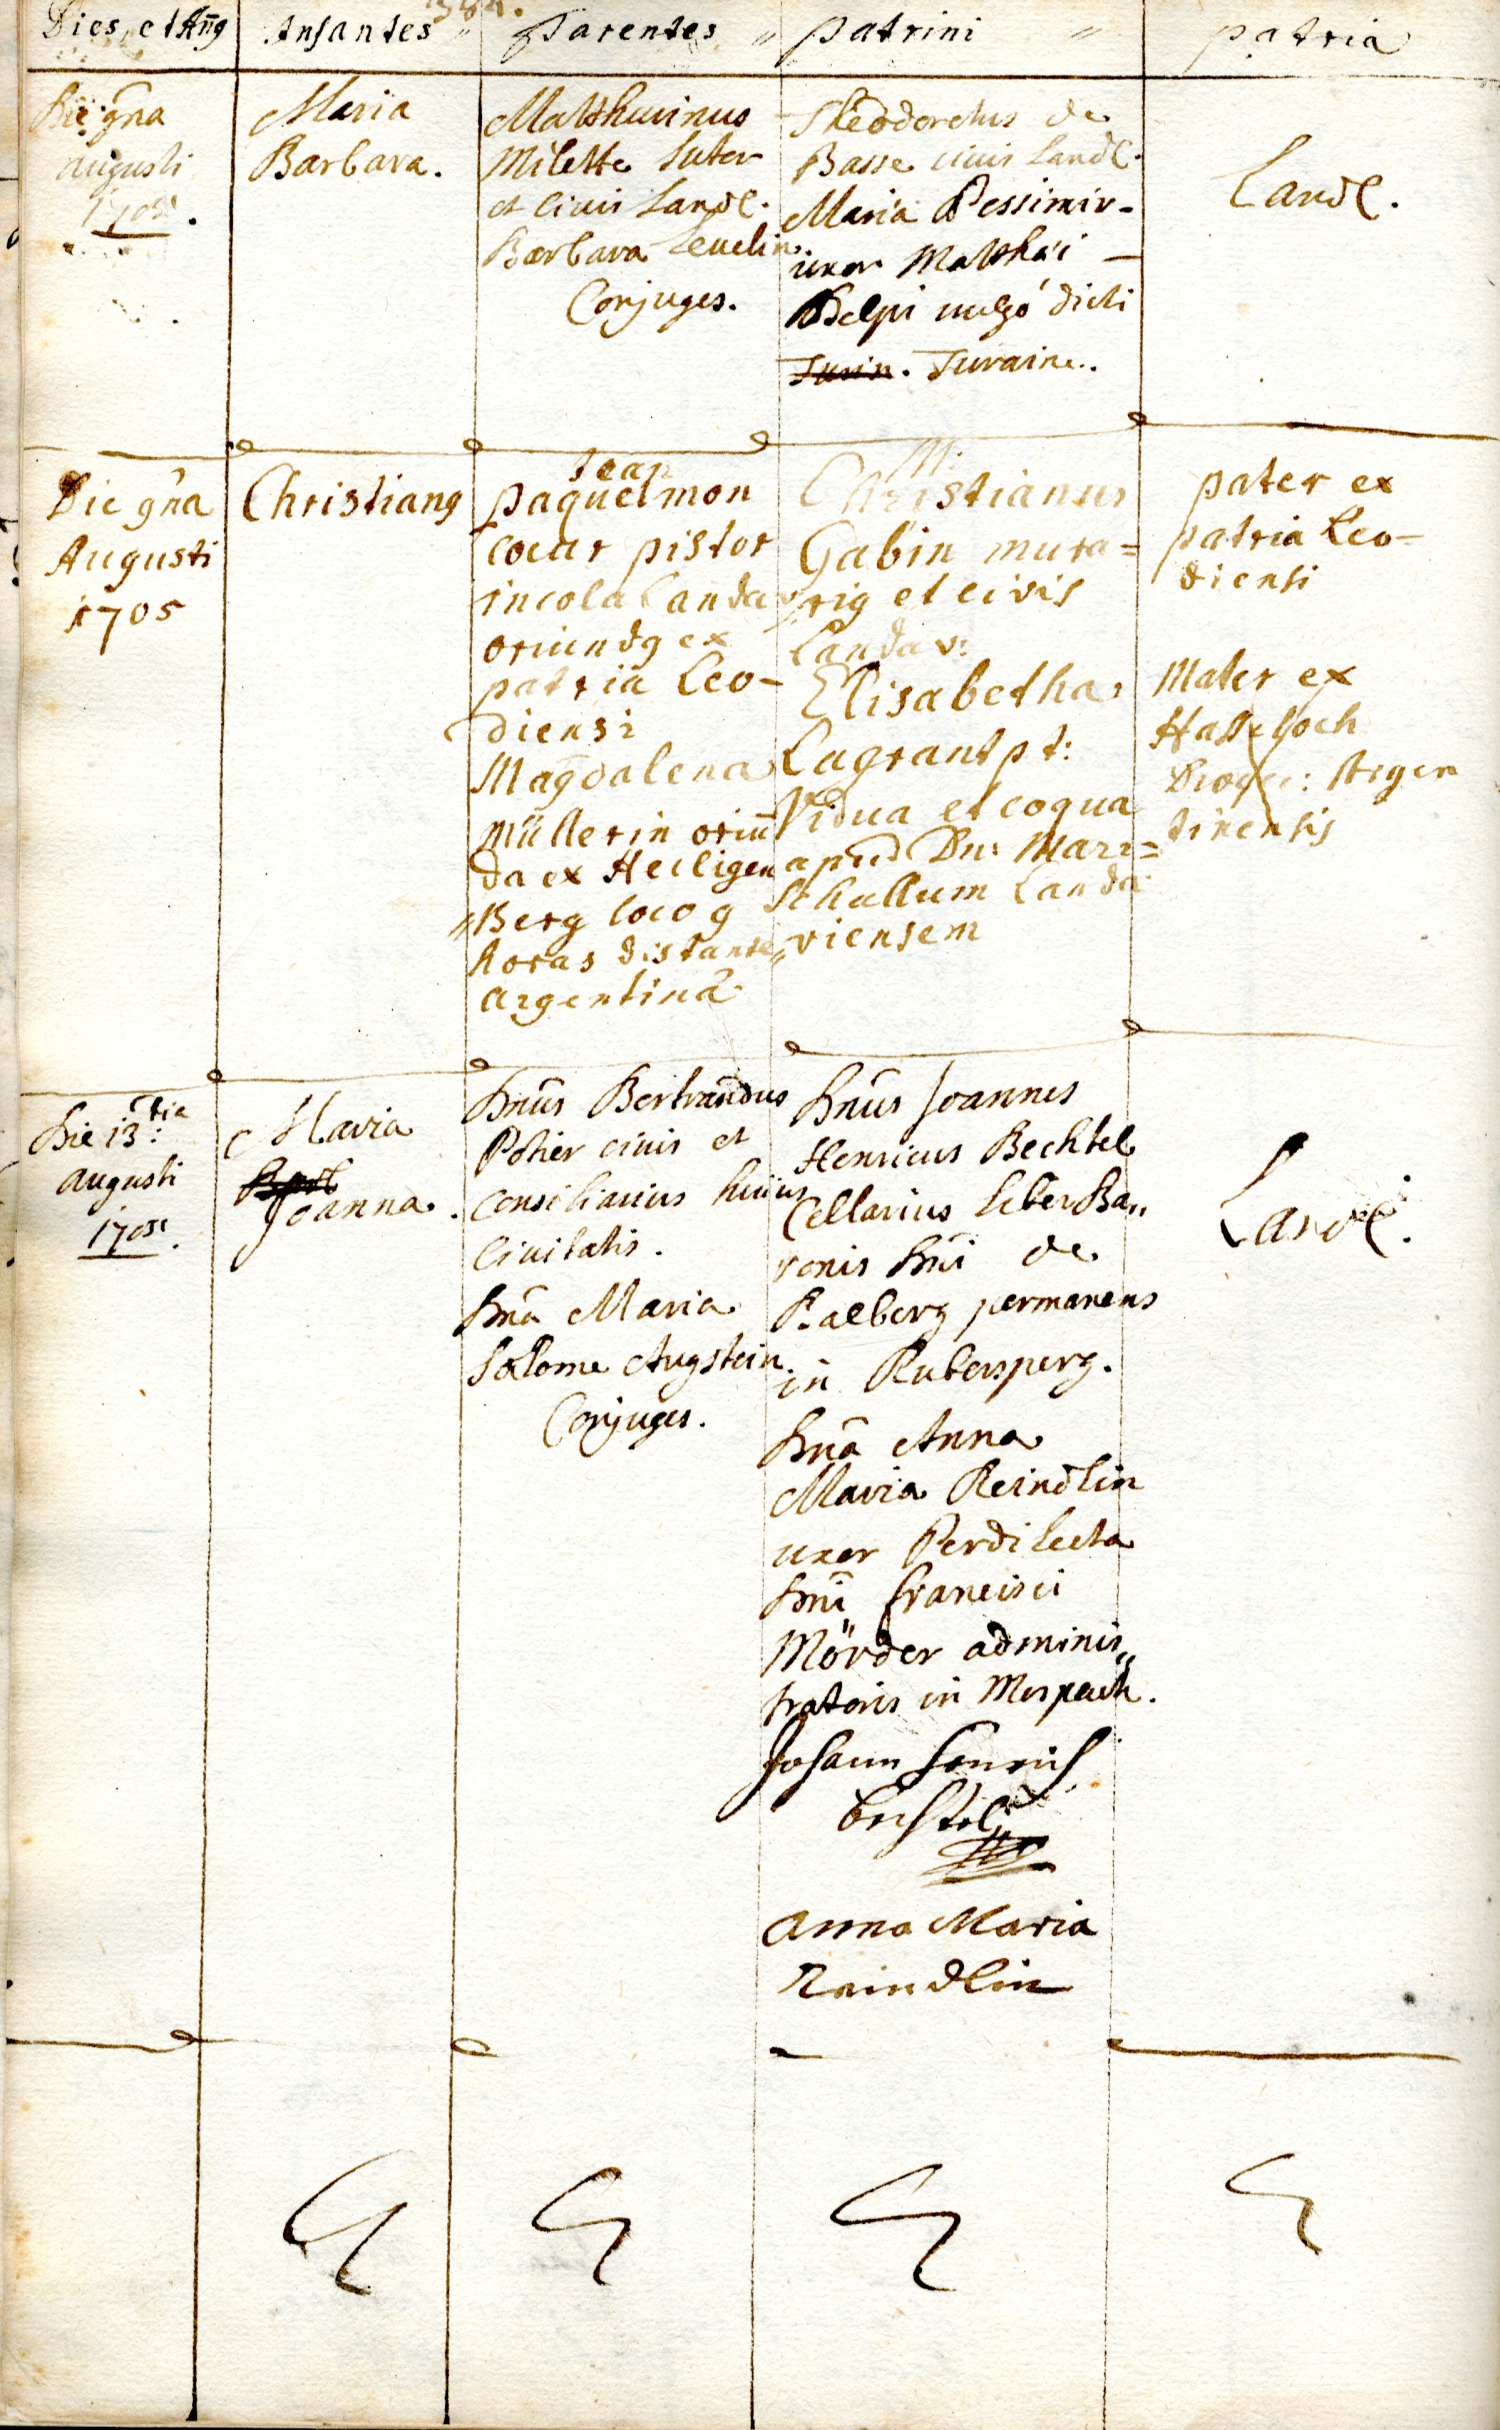 384.
Dies, et Anꝯ
Infantes "
Parentes "
Patrini "
patria
Die 9na
augusti
1705.
Maria
Barbara.
Matthurinus
Milette Sutor
et Civis Land.
Barbara Leuelin
Conjuges.
Theodoretus de
Basse civis Land.
Maria Pessimir-
uxor Matthæi –
Delpi vulgó dicti
Turin. Turaine.
Land.
Die 9na
Augusti
1705
Christianꝯ
Jean
paquet mon
coeur pistor
incola Landav:
oriundꝯ ex
patria Leo-
diensi
Magdalena
Müllerin oriū
da ex Heiligen
"Berg loco 9
horas distante"
argentinâ
M:
Christianus
Gabin mura=
riꝯ et civis
Landav:
Elisabetha
Lagrant pt:
Vidua et coqua
apud Dn: Mari=
schallum Landa
viensem
pater ex
patria Leo-
diensi
Mater ex
Hasseloch
Dioec: Argen
tinensis
Die 13tia:
augusti
1705.
Maria
Barb
Joanna.
Dnūs Bertrandus
Potier civis et
Consiliarius huius
Civitatis.
Dnā Maria
Salome Augstein
Conjuges.
Dnūs Joannes
Henricus Bechtel
Cellarius liber Ba"
ronis Dnī de
Dalberg permanens
in Rubersperg.
Dnā Anna
Maria Reindlin
uxor Perdilecta
Dnī Francisci
Mörder adminis"
tratoris in Morpach.
Johann Henrich
Bechtel
Anna Maria
Raindlin
Land.